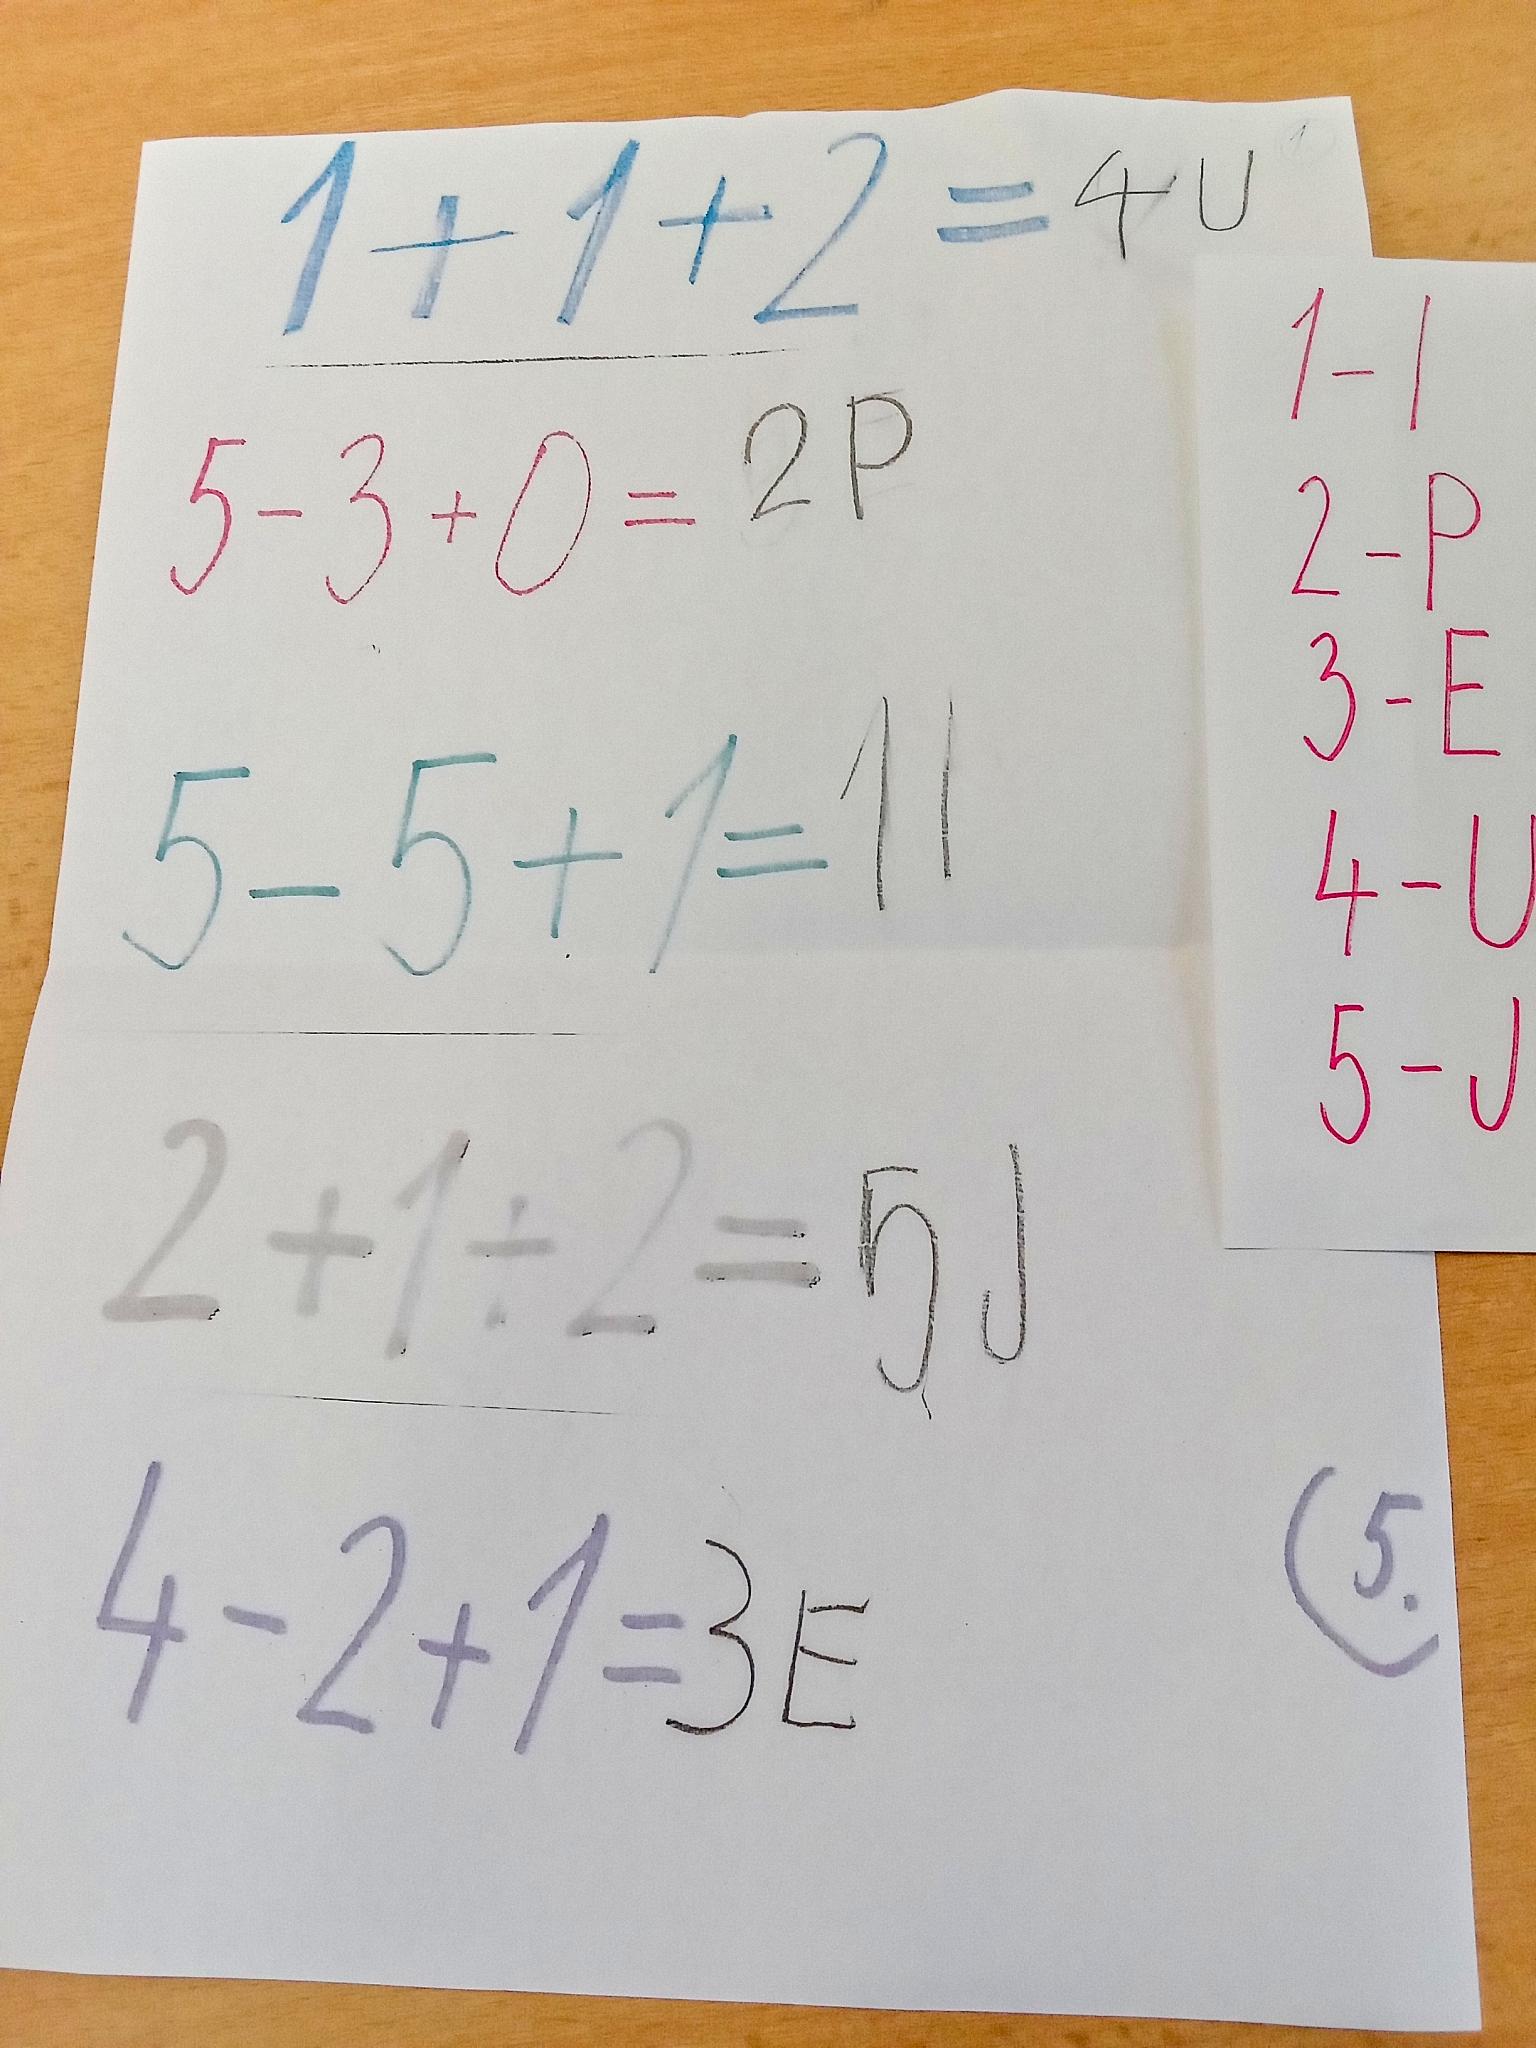 1+1+2=4U
5-3+0=2P
5-5+1=1I
2+1+2=5J
4-2+1=3E
5.
1-I
2-P
3-E
4-U
5-J